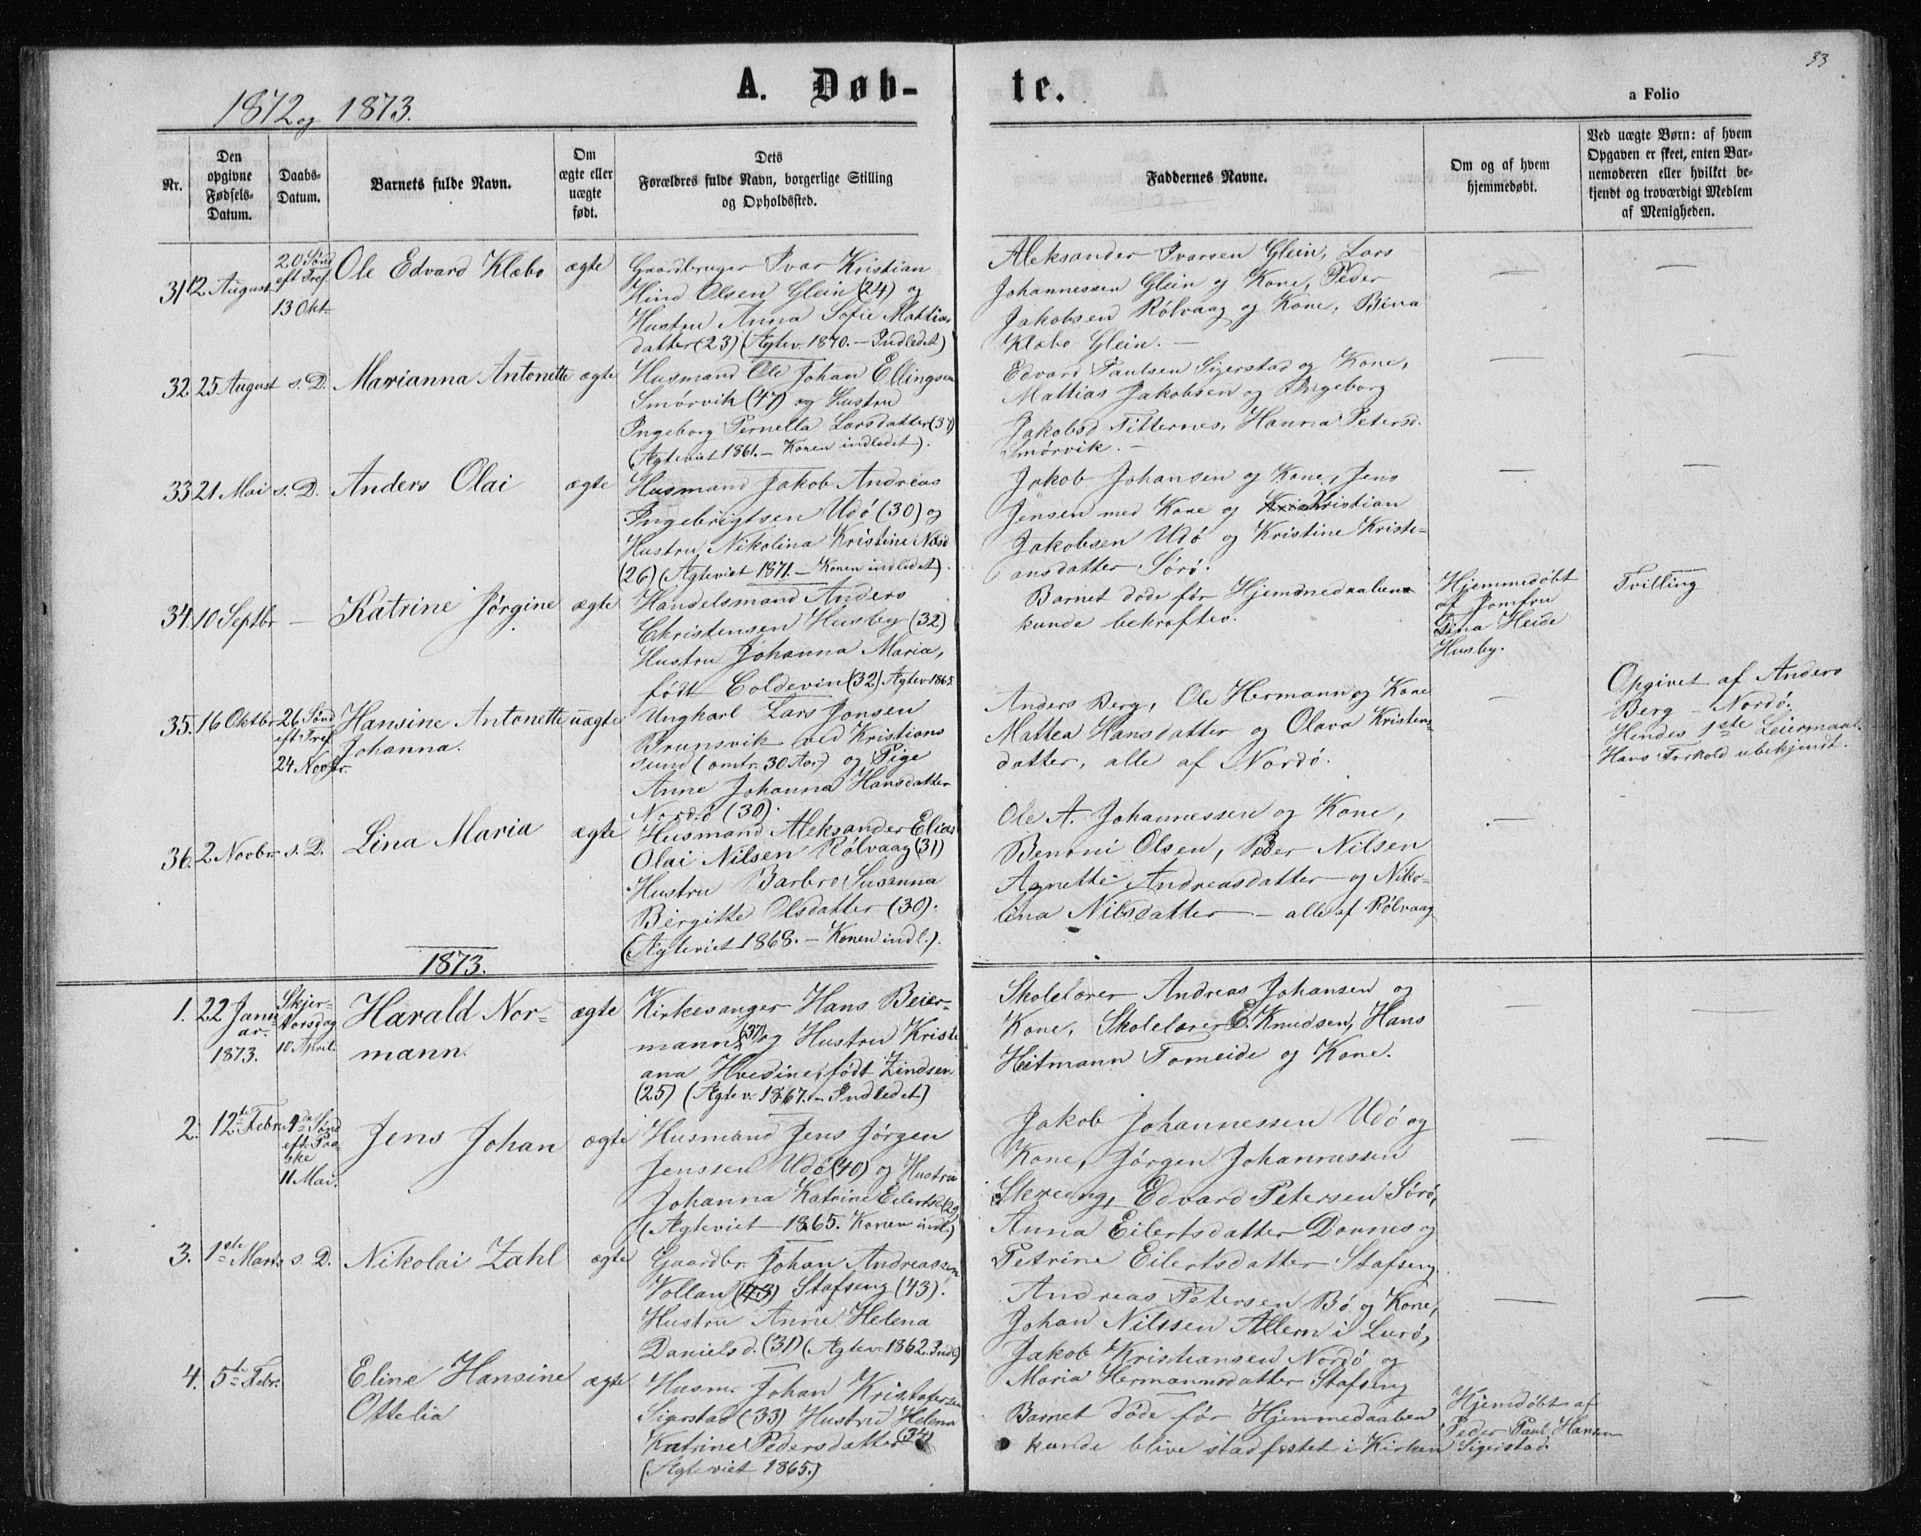 33
A. Døb-
te.
a Folio
1872 og 1873.
Nr.
Den opgivne Fødsels-Datum.
Daabs-Datum.
Barnets fulde Navn.
Om ægte eller uægte født.
Dets
Forældres fulde Navn, borgerlige Stilling
og Opholdssted.
Faddernes Navne.
Om og af hvem
hjemmedøbt.
Ved uægte Børn: af hvem
Opgaven er skeet, enten Bar-
nemoderen eller hvilket be-
kjendt og troværdigt Medlem
af Menigheden.
31 12 August
20 Sønd
eft Tref.
13 Okt.
Ole Edvard Klæbo
ægte
Gaardbruger Ivar Kristian
Hind Olsen Glein (24) og
Hustru Anna Sofie Mattias
datter (23) (Ægtev. 1870. - Indledet)
Aleksander Ivarsen Glein, Lars
Johannessen Glein og Kone, Peder
Jakobsen Rølvaag og Kone,
Klæbo Glein. -
32. 25 August
s. D.
Marianna Antonette
ægte
Husmand Ole Johan Ellingsen
Smørvik (47) og Hustru
Ingeborg Pernella Larsdatter (37)
(Ægteviet 1861. - Konen indledet).
Edvard Paulsen Sigerstad og Kone,
Mattias Jakobsen og Ingeborg
Jakobsd Titternes, Hanna Petersd.
Smørvik. -
33 21 Mai
s. D.
Anders Olai
ægte
Husmand Jakob Andreas
Ingebrigtsen Udø (30) og
Hustru Nikolina Kristine
(26) (Ægteviet 1871. - Konen indledet).
Jakob Johansen og Kone, Jens
Jensen med Kone og Kristian
Jakobsen Udø og Kristine Kristi-
ansdatter Sørø.
34. 10 Septbr
-
Katrine Jørgine
ægte
Handelsmand Anders
Christensen Husby (32)
Hustru Johanna Maria,
født Coldevin (32) Ægtev. 1865.
Barnet døde før Hjemmedaaben
kunde bekræftes.
Hjemmedøbt
af Jomfru
Dina Heide
Husby.
Tvilling
35. 16 Oktbr
26 Sønd
eft Tref
24 Novbr.
Hansine Antonette
Johanna.
uægte
Ungkarl Lars Jonsen
Brunsvik ved Kristians
sund (omtr. 30 Aar) og Pige
Anne Johanna Hansdatter
Nordø (30).
Anders Berg, Ole Hermann og Kone
Mattea Hansdatter og Olava Kristens-
datter, alle af Nordø.
Opgivet af Anders
Berg - Nordø.
Hendes 1ste Leiermaal.
Hans Forhold ubekjendt.
36. 2 Novbr.
s. D.
Lina Maria
ægte
Husmand Aleksander Elias
Olai Nilsen Rølvaag (31)
Hustru Barbro Susanna
Birgitte Olsdatter (30).
(Ægteviet 1868. - Konen indl.).
Ole A. Johannessen og Kone,
Benoni Olsen, Peder Nilsen
Agnette Andreasdatter og Niko-
lina Nilsdatter - alle af Rølvaag
1873.
1. 22 Janu
ar.
1873.
Skjær-
torsdag
10 April.
Harald Nor-
mann.
ægte
Kirkesanger Hans Beier-
mann (37) og Hustru Kristi
ana Hvesine, født Zindsen
(25) (Ægtev. 1867. - Indledet)
Skolelærer Andreas Johansen og
Kone, Skolelærer E. Knudsen, Hans
Heitmann Tomeide og Kone.
2. 12te Febr.
4de Sønd
eft. Paa-
ske
11 Mai.
Jens Johan
ægte
Husmand Jens Jørgen
Jenssen Udø (40) og Hustru
Johanna Katrine Eilertsd (29)
(Ægteviet 1865. Konen indl.)
Jakob Johannessen Udø og
Kone, Jørgen Johannessen
Skeeng, Edvard Petersen Sørø,
Anna Eilertsdatter Dønnes og
Petrine Eilertsdatter Stafseng.
3. 1ste Marts
s. D.
Nikolai Zahl
ægte
Gaardbr. Johan Andreassen
Vollan (43) Stafseng (43).
Hustru Anne Helena
Danielsd. (31) (Ægtev. 1862. Indl)
Andreas Petersen Bø og Kone,
Johan Nilssen Allern i Lurø,
Jakob Kristiansen Nordø og
Maria Hermannsdatter Stafseng
4. 5te Febr.
Eline Hansine
Ottelia
ægte
Husm. Johan Kristofersen
Sigerstad (33) Hustru Helena
Katrine Pedersdatter (34)
(Ægteviet 1865.)
Barnet døde før Hjemmedaaben
kunde blive stadfæstet i Kirken
Hjemdøbt af
Peder Paul Hansen
Sigerstad.